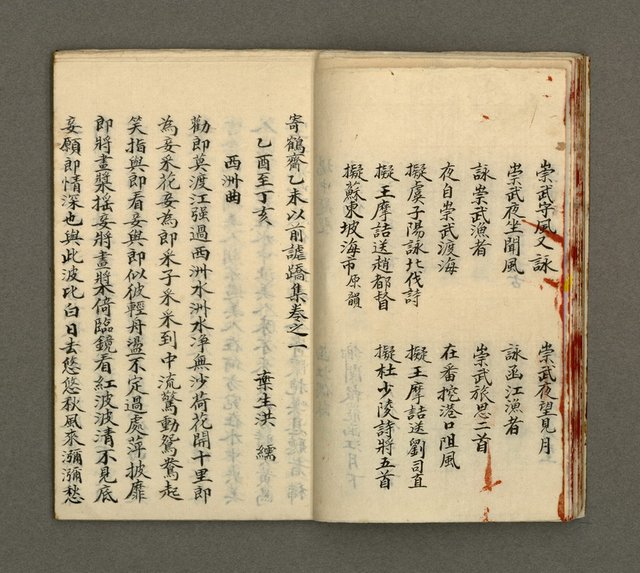 崇武守風又詠
崇武夜望見月
崇武夜坐聞風
詠函江漁者
詠崇武漁者
崇武旅思二首
夜自崇武渡海
在番挖港口阻風
擬虞子陽詠北伐詩
擬王摩詰送劉司直
擬王摩詰送趙都督
擬杜少陵詩將五首
擬蘇東坡海市原韻
寄鶴齋乙未以前謔蹻集卷之一
乙酉至丁亥
葉生洪繻
西洲曲
勸郎莫渡江强過西洲水洲水淨無沙荷花開十里郎
為妾采花妾為郎采子采采到中流驚動鴛鴦起
笑指與郎看妾與郎似彼輕舟盪不定過處萍披靡
郎將畫槳搖妾將畫槳倚臨鏡看紅波波清不見底
妾願郎情深也與此波比白日去悠悠秋風來瀰瀰愁